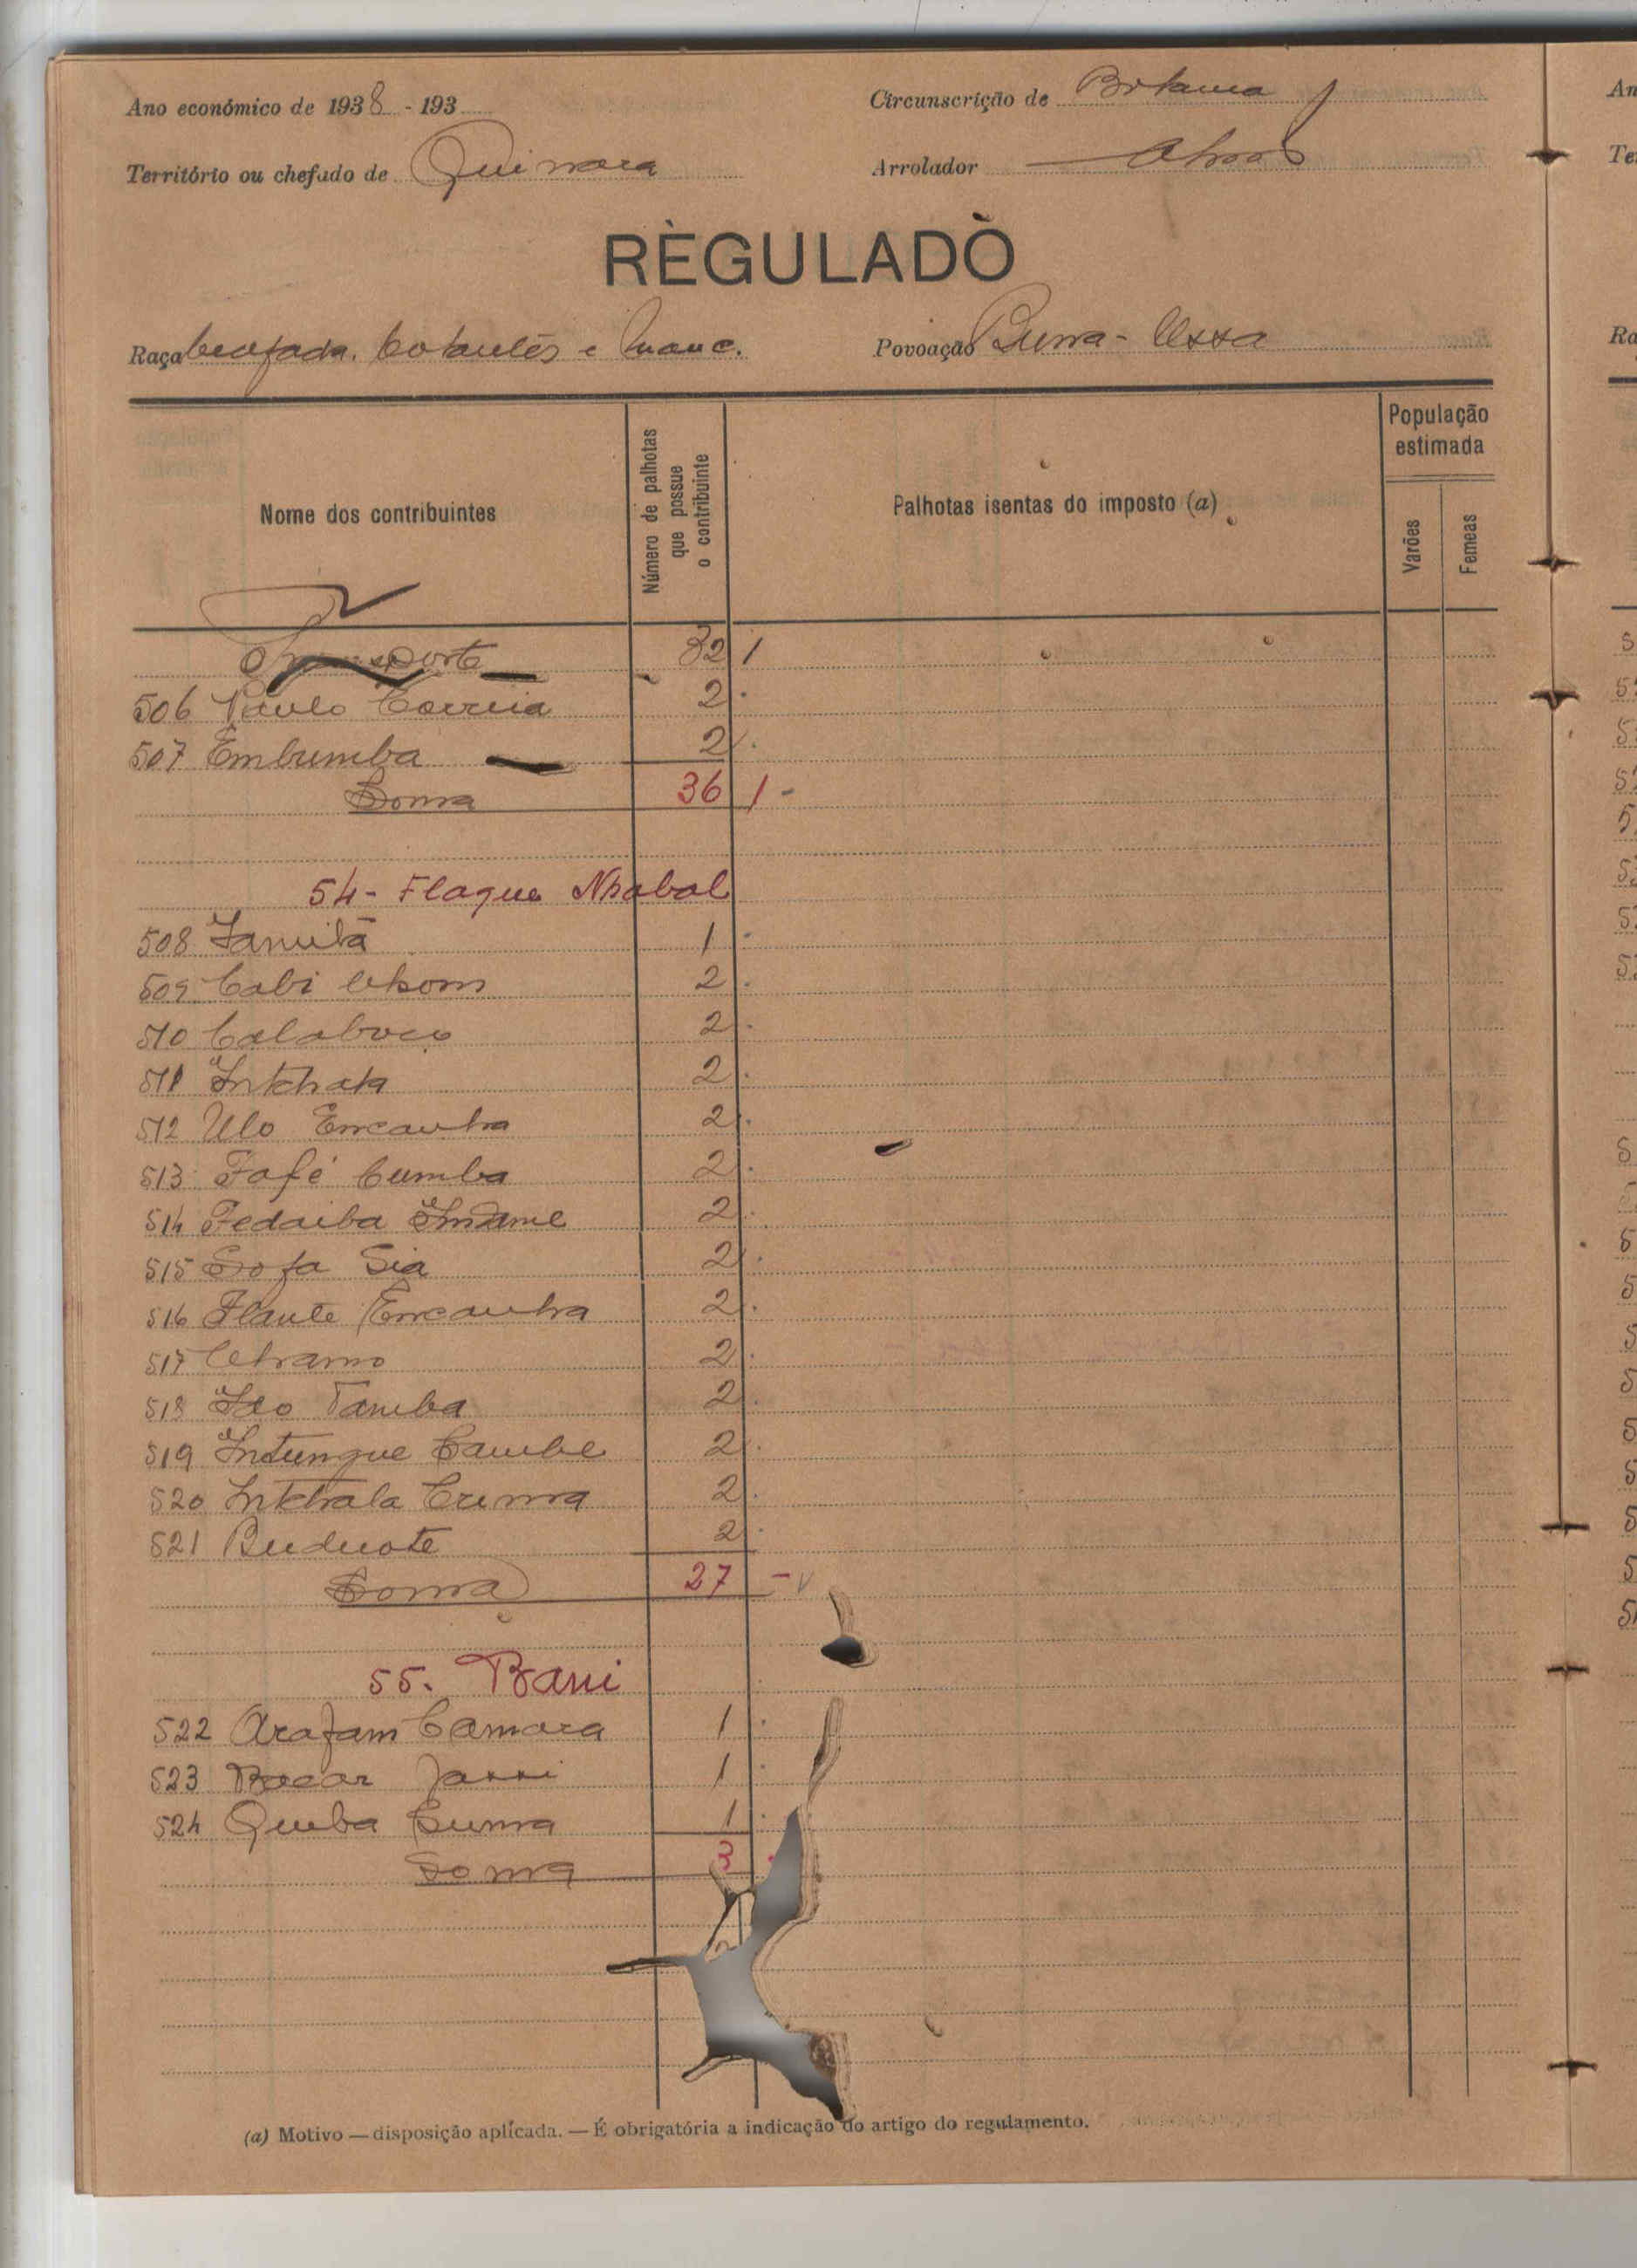 Ano económico de 1938 - 193
Circunscrição de Bolama
Território ou chefado de Quinara
Arrolador
REGULADO
Raça beafada, e manc.
Povoação Buma-
Nome dos contribuintes
Número de palhotas que possue o contribuinte
Palhotas isentas do imposto (a)
População estimada
Varões
Femeas
Transporte 32 1
506 Paulo Correia 2
507 Embumba 2
Soma 36 1 -
54- Flaque Nhabal
508 1
509 Cabi 2
510 Calaboço 2
511 Intchata 2
512 Ulo Encanha 2
513 Fafé Cumba 2
514 Fedaiba 2
515 Sofa Sia 2
516 Flanté Encanha 2
517 2
518 Tamba 2
519 Intungue 2
520 Intchala 2
521 Buduote 2
Soma 27 -
55. Bani
522 Arafam Camara 1
523 Bocar Jassi 1
524 Queba 1
Soma 3
(a) Motivo — disposição aplicada. — É obrigatória a indicação do artigo do regulamento.